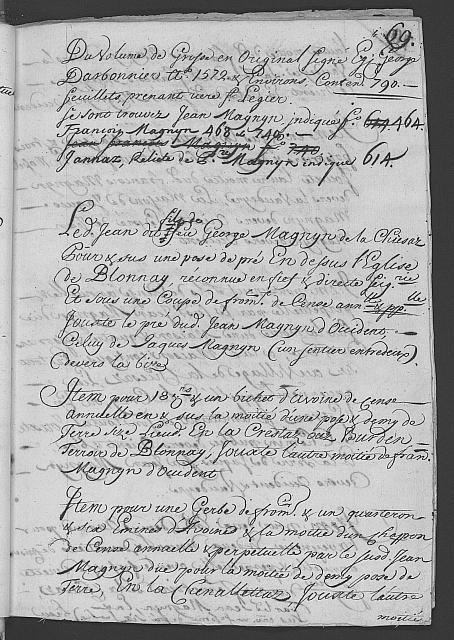 69.
Du Volume de Grosse en Original signé Egr. George
Darbonnier dès 1572. & Environs, Conten. 790.
feuillets, prenant vers St. Legier.
se sont trouvez Jean Magnyn indiqué fo. 464.
François Magnyn 468 & 740.
Jean François Magnyn fo. 740
Jannaz, Relicte de Magnyn indiqué 614.
Led. Jean dit fils de feu George Magnyn de la Chiesaz
Pour & sus une pose de pré En dessus l'Eglise
de Blonnay, reconnue en fief & directe Seig.rie
Et sous une Coupe de from.t de Cense ann.lle & pp.lle
Jouste le pré dud. Jean Magnyn d'Occident.
Celuy de Jaques Magnyn (un sentier entredeux)
devers la bize
Item pour 18 & un bichet d'avoine de Cense
annuelle en & sus la moitié d'une pose & demy de
Terre Lieud. En la Crestaz ouz Burden
Terroir de Blonnay, Jouste l'autre moitié de fran.
Magnyn d'Occident
Item pour une Gerbe de from.t & un quarteron
& six Emines d'Avoine & la moitié d'un Chappon
de Cense annuelle & perpetuelle par le sud. Jean
Magnyn due pour la moitié de demy pose de
Terre, En la Chenallettaz, Jouste l'autre
moitié